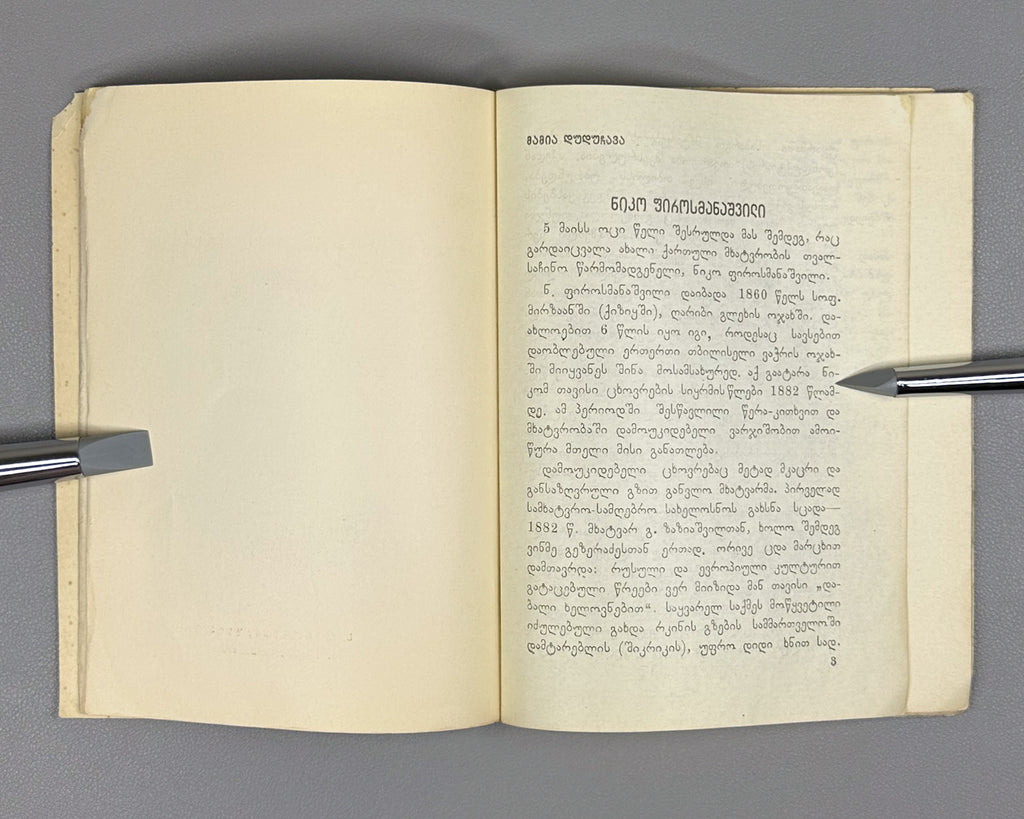 მამია დუდუჩავა
ნიკო ფიროსმანაშვილი
5 მაისს ოცი წელი შესრულდა მას შემდეგ, რაც
გარდაიცვალა ახალი ქართული მხატვრობის თვალ-
საჩინო წარმომადგენელი, ნიკო ფიროსმანაშვილი.
ნ. ფიროსმანაშვილი დაიბადა 1860 წელს სოფ.
მირზაანში (ქიზიყში), ღარიბი გლეხის ოჯახში. და-
ახლოებით 6 წლის იყო იგი, როდესაც სავსებით
დაობლებული ერთერთი თბილისელი ვაჭრის ოჯახ-
ში მიიყვანეს შინა მოსამსახურედ. აქ გაატარა ნი-
კომ თავისი ცხოვრების სიყრმისწლები 1882 წლამ-
დე. ამ პერიოდში შესწავლილი წერა-კითხვით და
მხატვრობაში დამოუკიდებელი ვარჯიშობით ამოი-
წურა მთელი მისი განათლება.
დამოუკიდებელი ცხოვრებაც მეტად მკაცრი და
განსაზღვრული გზით განვლო მხატვარმა. პირველად
სამხატვრო-სამღებრო სახელოსნოს გახსნა სცადა—
1882 წ. მხატვარ გ. ზაზიაშვილთან, ხოლო შემდეგ
ვინმე გეზერაძესთან ერთად. ორივე ცდა მარცხით
დამთავრდა: რუსული და ევროპიული კულტურით
გატაცებული წრეები ვერ მიიზიდა მან თავისი „და-
ბალი ხელოვნებით“. საყვარელ საქმეს მოწყვეტილი
იძულებული გახდა რკინის გზების სამმართველოში
დამტარებლის (შიკრიკის), უფრო დიდი ხნით სად.
3